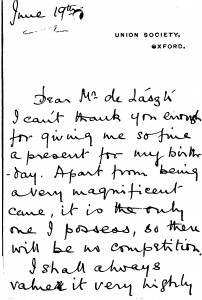 June 19th
UNION SOCIETY,
OXFORD.
Dear Mr. de László
I can't thank you enough
for giving me so fine
a present for my birth
-day. Apart from being
a very magnificent
cane, it is the only
one I possess, so there
will be no competition.
I shall always
value it very highly